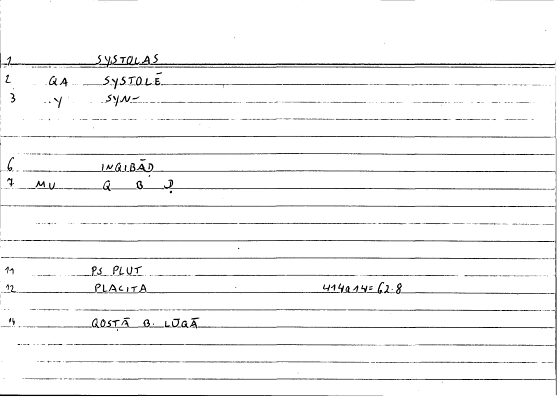 1 SYSTOLAS
2 QA SYSTOLĒ
3 ..Y SYN-
6 INQIBĀḌ
7 MU Q B Ḍ
11 PS. PLUT
12 PLACITA 414a14=62.8
14 QOSṬĀ B. LŪQĀ